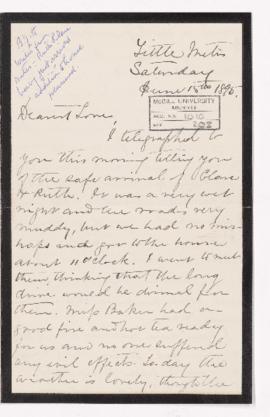 Little Metis
Saturday
June 15th 1895
McGILL UNIVERSITY
ARCHIVES
ACC. NO. 1010
REF.
Dearest Love,
I telegraphed to
you this morning telling you
of the safe arrival of Clare
& Ruth. It was a very wet
night and the roads very
muddy, but we had no mis-
haps and got to the house
about 11 o'clock. I went to meet
them, thinking that the long
drive would be dismal for
them. Miss Baker had a
good fire and hot tea ready
for us and no one suffered
any evil effects. To-day the
weather is lovely, though the